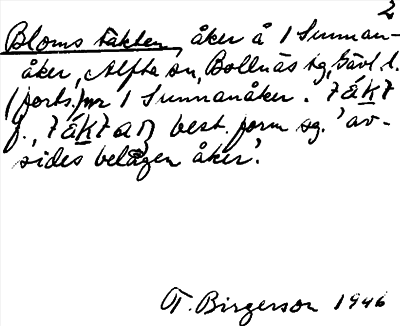 2
Bloms täkten, åker å 1 Sunnan-
åker, Alfta sn, Bollnäs tg, Gävl. l.
(forts. fr 1 Sunnanåker.
f., best. form sg. 'av-
sides belägen åker'.
T. Birgerson 1946